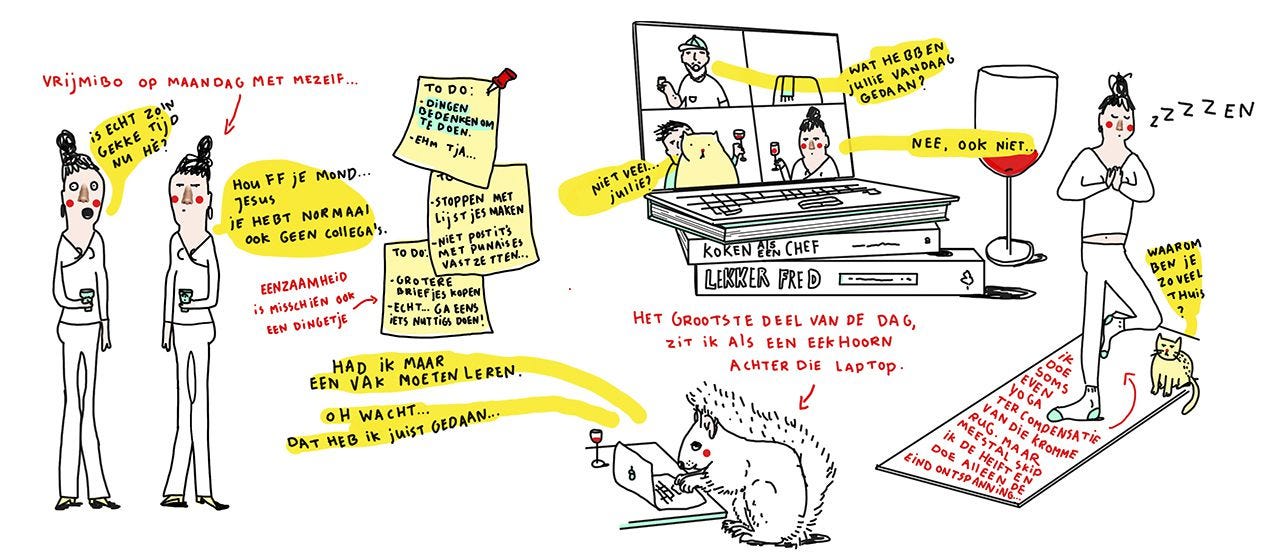 VRIJMIBO OP MAANDAG MET MEZELF...
IS ECHT ZO'N
GEKKE TIJD
NU HÈ?
HOU FF JE MOND...
JESUS
JE HEBT NORMAAL
OOK GEEN COLLEGA'S.
EENZAAMHEID
IS MISSCHIEN OOK
EEN DINGETJE
TO DO:
-DINGEN
BEDENKEN OM
TE DOEN.
-EHM TJA...
TO
-STOPPEN MET
LIJSTJES MAKEN
-NIET POSTIT'S
MET PUNAISES
VASTZETTEN...
TO DO:
-GROTERE
BRIEFJES KOPEN
-ECHT... GA EENS
IETS NUTTIGS DOEN!
WAT HEBBEN
JULLIE VANDAAG
GEDAAN?
NIET VEEL...
JULLIE?
NEE, OOK NIET...
KOKEN ALS EEN CHEF
LEKKER FRED
HET GROOTSTE DEEL VAN DE DAG,
ZIT IK ALS EEN EEKHOORN
ACHTER DIE LAPTOP.
HAD IK MAAR
EEN VAK MOETEN LEREN.
OH WACHT...
DAT HEB IK JUIST GEDAAN...
ZZZZEN
WAAROM
BEN JE
ZOVEEL
THUIS
?
IK
DOE
SOMS
EVEN
YOGA
TER COMPENSATIE
VAN DIE KROMME
RUG. MAAR
MEESTAL SKIP
IK DE HELFT EN
DOE ALLEEN DE
EINDONTSPANNING...